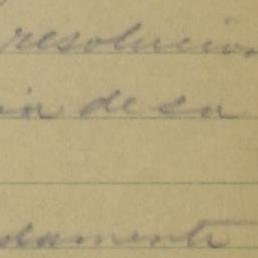 resolucion
de su
damente